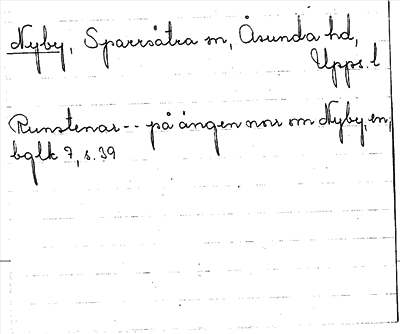 Nyby, Sparrsätra sn, Åsunda hd,
Upps. l
Runstenar -- på ängen norr om Nyby, en,
bglk 7, s. 39